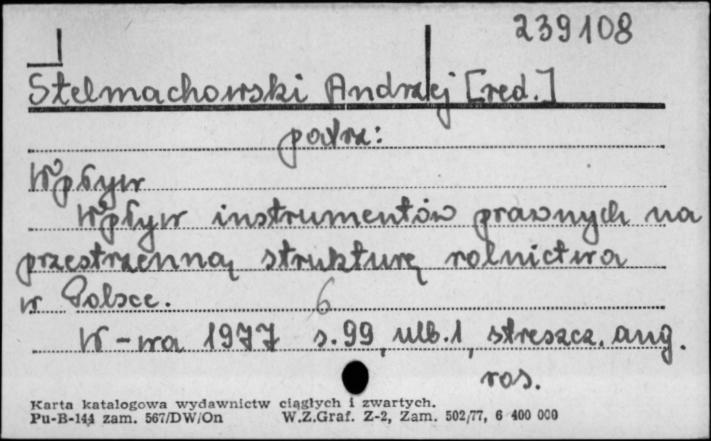 239108
Stelmachowski Andrzej [red.]
patrz:
Wpływ
Wpływ instrumentów prawnych na
przestrzenną strukturę rolnictwa
w Polsce. 6
W-wa 1977 s. 99, nlb. 1, streszcz. ang.
ros.
Karta katalogowa wydawnictw ciągłych i zwartych.
Pu-B-144 zam. 567/DW/On W.Z.Graf. Z-2, Zam. 502/77, 6 400 000